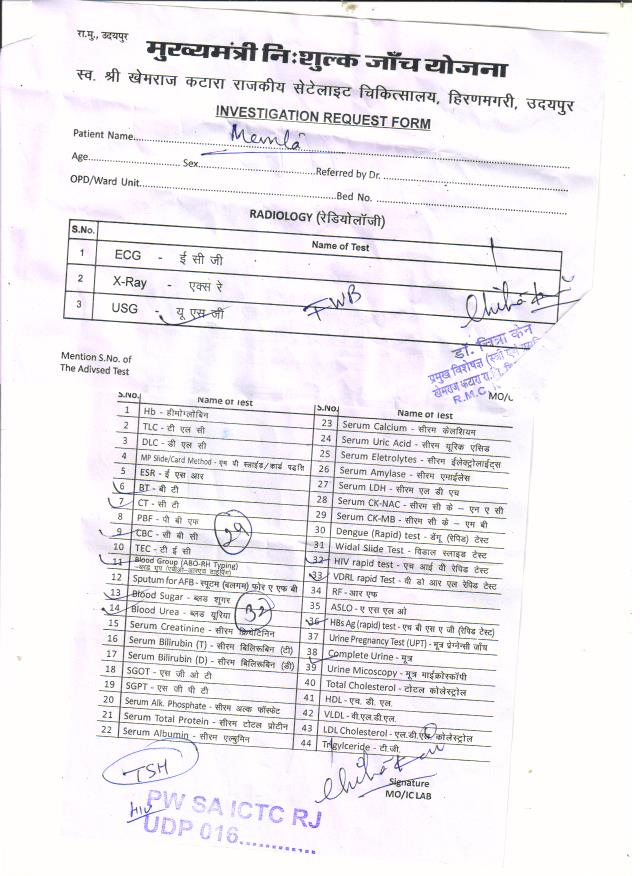 रा.मु., उदयपुर
मुख्यमंत्री निःशुल्क जाँच योजना
स्व. श्री खेमराज कटारा राजकीय सेटेलाइट चिकित्सालय, हिरणमगरी, उदयपुर
INVESTIGATION REQUEST FORM
Patient Name
Age Sex Referred by Dr.
OPD/Ward Unit Bed No.
RADIOLOGY (रेडियोलॉजी)
S.No. Name of Test
1 ECG - ई सी जी
2 X-Ray - एक्स रे
3 USG - यू एस जी FWB
डॉ. चित्रा
प्रमुख विशेषज्ञ
खेमराज कटारा रा.
R.M.C. MO/
Mention S.No. of
The Adivsed Test
S.No. Name of Test S.No. Name of Test
1 Hb - हीमोग्लोबिन 23 Serum Calcium - सीरम केलशियम
2 TLC - टी एल सी 24 Serum Uric Acid - सीरम यूरिक एसिड
3 DLC - डी एल सी 25 Serum Eletrolytes - सीरम ईलेक्ट्रोलाईट्स
4 MP Slide/Card Method - एम पी स्लाईड/कार्ड पद्धति 26 Serum Amylase - सीरम एमाईलेस
5 ESR - ई एस आर 27 Serum LDH - सीरम एल डी एच
6 BT - बी टी 28 Serum CK-NAC - सीरम सी के – एन ए सी
7 CT - सी टी 29 Serum CK-MB - सीरम सी के – एम बी
8 PBF - पी बी एफ 30 Dengue (Rapid) test - डेंगू (रेपिड) टेस्ट
9 CBC - सी बी सी 31 Widal Slide Test - विडाल स्लाइड टेस्ट
10 TEC - टी ई सी 32 HIV rapid test - एच आई वी रेपिड टेस्ट
11 Blood Group (ABO-RH Typing) 33 VDRL rapid Test - वी डी आर एल रेपिड टेस्ट
12 Sputum for AFB - स्पूटम (बलगम) फोर ए एफ बी 34 RF - आर एफ
13 Blood Sugar - ब्लड शूगर 35 ASLO - ए एस एल ओ
14 Blood Urea - ब्लड यूरिया 36 HBs Ag (rapid) test - एच बी एस ए जी (रेपिड टेस्ट)
15 Serum Creatinine - सीरम क्रियेटिनिन 37 Urine Pregnancy Test (UPT) - मूत्र प्रेग्नेन्सी जाँच
16 Serum Bilirubin (T) - सीरम बिलिरूबिन (टी) 38 Complete Urine - मूत्र
17 Serum Bilirubin (D) - सीरम बिलिरूबिन (डी) 39 Urine Micoscopy - मूत्र माईक्रोस्कॉपी
18 SGOT - एस जी ओ टी 40 Total Cholesterol - टोटल कोलेस्ट्रोल
19 SGPT - एस जी पी टी 41 HDL - एच. डी. एल.
20 Serum Alk. Phosphate - सीरम अल्क फॉस्फेट 42 VLDL - वी.एल.डी.एल.
21 Serum Total Protein - सीरम टोटल प्रोटीन 43 LDL Cholesterol - एल.डी.एल. कोलेस्ट्रोल
22 Serum Albumin - सीरम एल्बुमिन 44 Trigylceride - टी.जी.
TSH
Signature
MO/IC LAB
HIV
PW SA ICTC RJ
UDP 016